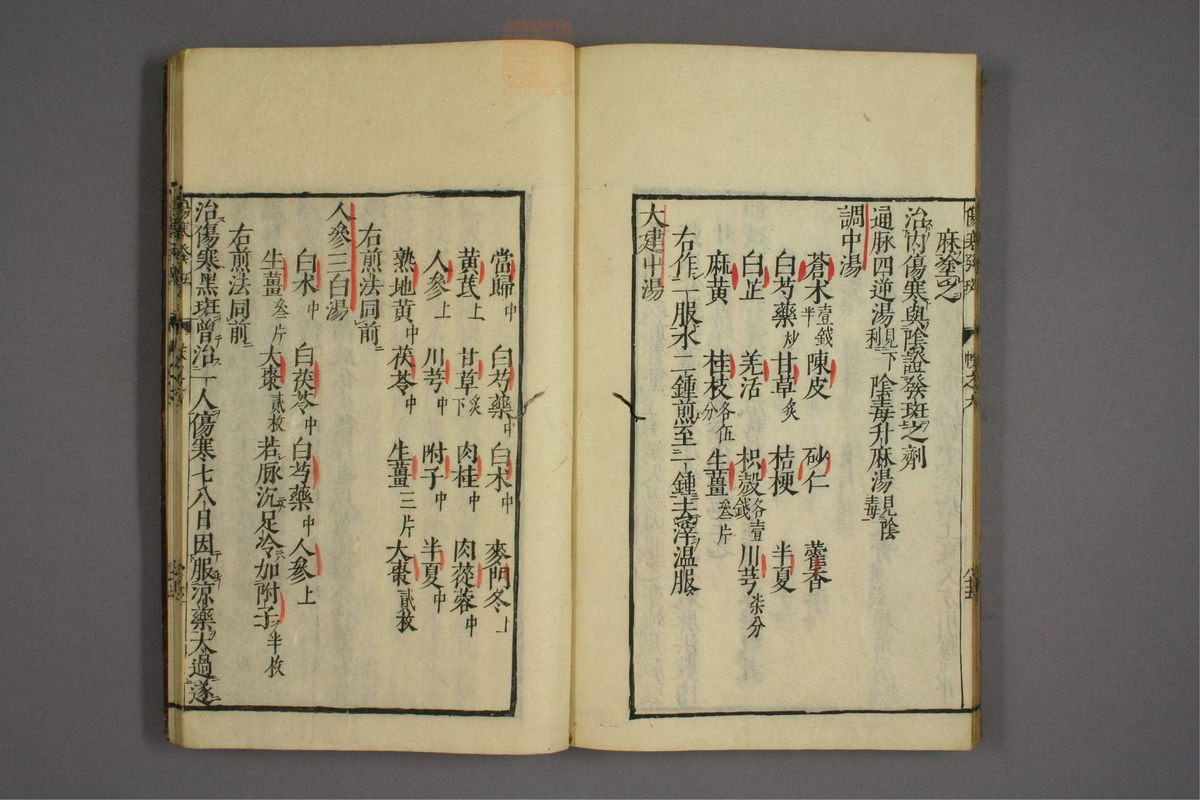 麻奎之
治内傷寒與陰證發斑之劑
通脉四逆湯見下利 陰毒升麻湯見陰毒
調中湯
蒼朮壹錢半 陳皮 砂仁 藿香
白芍藥炒 甘草炙 桔梗 半夏
白芷 羌活 枳殼各壹錢 川芎柒分
麻黄 桂枝各伍分 生薑叄片
右作一服水二鍾煎至一鍾去滓温服
大建中湯
當歸中 白芍藥中 白朮中 麥門冬上
黄芪上 甘草炙下 肉桂中 肉蓯蓉中
人參上 川芎中 附子中 半夏中
熟地黄中 茯苓中 生薑三片 大棗貳枚
右煎法同前
人參三白湯
白朮中 白茯苓中 白芍藥中 人參上
生薑叄片 大棗貳枚 若脉沉足冷加附子半枚
右煎法同前
治傷寒黑斑曾治一人傷寒七八日因服凉藥太過遂